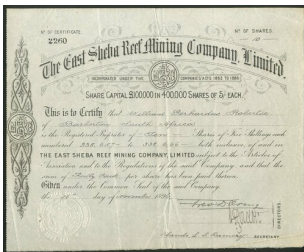 Nº OF CERTIFICATE
Nº OF SHARES.
2260
10
The East Sheba Reef Mining Company, Limited.
INCORPORATED UNDER THE COMPANIES ACTS 1862 TO 1886
SHARE CAPITAL £100,000 IN 400,000 SHARES OF 5/- EACH.
This is to Certify that William
Barberton South Africa
is the Registered Proprietor of Shares of Five Shillings each
numbered to both inclusive, of and in
THE EAST SHEBA REEF MINING COMPANY, LIMITED subject to the Articles of
Association and to the Regulations of the said Company and that the
sum of per share has been paid thereon.
Given under the Common Seal of the said Company,
the day of November